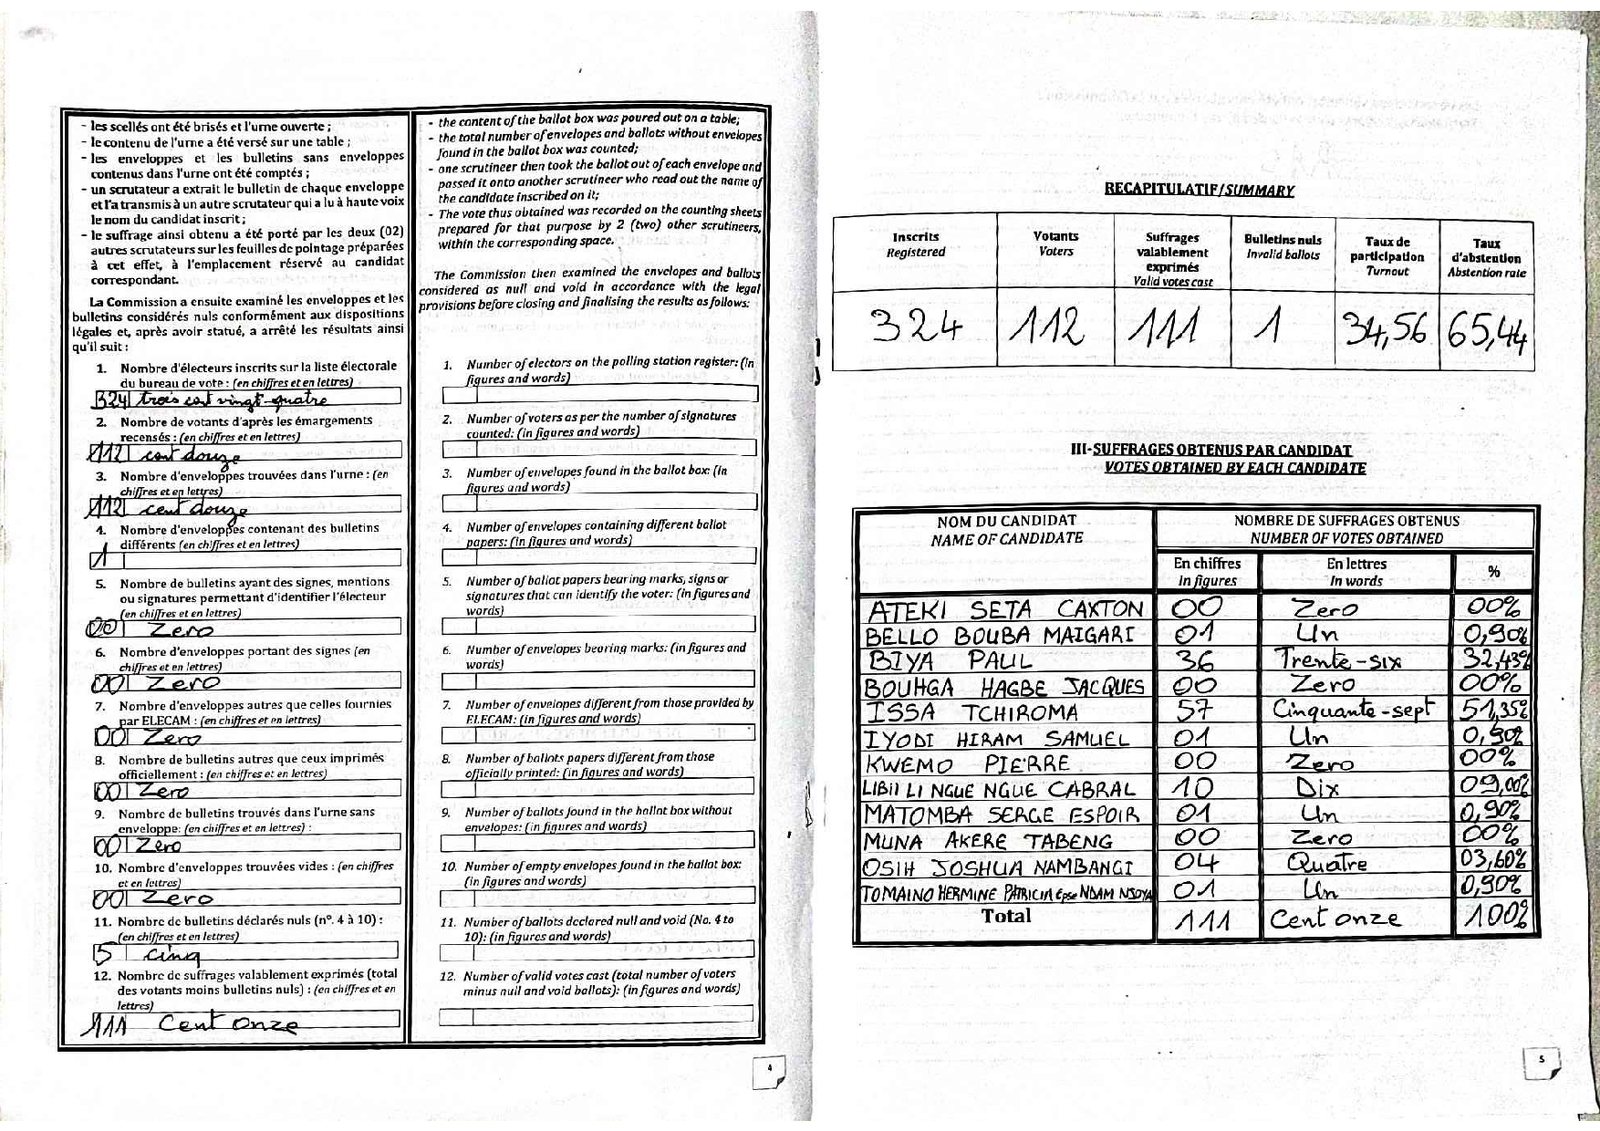 - les scellés ont été brisés et l'urne ouverte ;
- le contenu de l'urne a été versé sur une table ;
- les enveloppes et les bulletins sans enveloppes
contenus dans l'urne ont été comptés ;
- un scrutateur a extrait le bulletin de chaque enveloppe
et l'a transmis à un autre scrutateur qui a lu à haute voix
le nom du candidat inscrit ;
- le suffrage ainsi obtenu a été porté par les deux (02)
autres scrutateurs sur les feuilles de pointage préparées
à cet effet, à l'emplacement réservé au candidat
correspondant.
La Commission a ensuite examiné les enveloppes et les
bulletins considérés nuls conformément aux dispositions
légales et, après avoir statué, a arrêté les résultats ainsi
qu'il suit :
1. Nombre d'électeurs inscrits sur la liste électorale
du bureau de vote : (en chiffres et en lettres)
324 trois cent vingt-quatre
2. Nombre de votants d'après les émargements
recensés : (en chiffres et en lettres)
112 cent douze
3. Nombre d'enveloppes trouvées dans l'urne : (en
chiffres et en lettres)
112 cent douze
4. Nombre d'enveloppes contenant des bulletins
différents (en chiffres et en lettres)
1
5. Nombre de bulletins ayant des signes, mentions
ou signatures permettant d'identifier l'électeur
(en chiffres et en lettres)
00 Zero
6. Nombre d'enveloppes portant des signes (en
chiffres et en lettres)
00 Zero
7. Nombre d'enveloppes autres que celles fournies
par ELECAM : (en chiffres et en lettres)
00 Zero
8. Nombre de bulletins autres que ceux imprimés
officiellement : (en chiffres et en lettres)
00 Zero
9. Nombre de bulletins trouvés dans l'urne sans
enveloppe: (en chiffres et en lettres) :
00 Zero
10. Nombre d'enveloppes trouvées vides : (en chiffres
et en lettres)
00 Zero
11. Nombre de bulletins déclarés nuls (n°. 4 à 10) :
(en chiffres et en lettres)
5 cinq
12. Nombre de suffrages valablement exprimés (total
des votants moins bulletins nuls) : (en chiffres et en
lettres)
111 Cent onze
- the content of the ballot box was poured out on a table;
- the total number of envelopes and ballots without envelopes
found in the ballot box was counted;
- one scrutineer then took the ballot out of each envelope and
passed it onto another scrutineer who read out the name of
the candidate inscribed on it;
- The vote thus obtained was recorded on the counting sheets
prepared for that purpose by 2 (two) other scrutineers,
within the corresponding space.
The Commission then examined the envelopes and ballots
considered as null and void in accordance with the legal
provisions before closing and finalising the results as follows:
1. Number of electors on the polling station register: (in
figures and words)
2. Number of voters as per the number of signatures
counted: (in figures and words)
3. Number of envelopes found in the ballot box: (in
figures and words)
4. Number of envelopes containing different ballot
papers: (in figures and words)
5. Number of ballot papers bearing marks, signs or
signatures that can identify the voter: (in figures and
words)
6. Number of envelopes bearing marks: (in figures and
words)
7. Number of envelopes different from those provided by
ELECAM: (in figures and words)
8. Number of ballots papers different from those
officially printed: (in figures and words)
9. Number of ballots found in the ballot box without
envelopes: (in figures and words)
10. Number of empty envelopes found in the ballot box:
(in figures and words)
11. Number of ballots declared null and void (No. 4 to
10): (in figures and words)
12. Number of valid votes cast (total number of voters
minus null and void ballots): (in figures and words)
4
RECAPITULATIF/SUMMARY
Inscrits Registered | Votants Voters | Suffrages valablement exprimés Valid votes cast | Bulletins nuls Invalid ballots | Taux de participation Turnout | Taux d'abstention Abstention rate
324 112 111 1 34,56 65,44
III-SUFFRAGES OBTENUS PAR CANDIDAT
VOTES OBTAINED BY EACH CANDIDATE
NOM DU CANDIDAT NOMBRE DE SUFFRAGES OBTENUS
NAME OF CANDIDATE NUMBER OF VOTES OBTAINED
En chiffres En lettres %
In figures In words
ATEKI SETA CAXTON 00 Zero 00%
BELLO BOUBA MAIGARI 01 Un 0,90%
BIYA PAUL 36 Trente-six 32,43%
BOUHGA HAGBE JACQUES 00 Zero 00%
ISSA TCHIROMA 57 Cinquante-sept 51,35%
IYODI HIRAM SAMUEL 01 Un 0,90%
KWEMO PIERRE 00 Zero 00%
LIBII LI NGUE NGUE CABRAL 10 Dix 09,00%
MATOMBA SERGE ESPOIR 01 Un 0,90%
MUNA AKERE TABENG 00 Zero 00%
OSIH JOSHUA NAMBANGI 04 Quatre 03,60%
TOMAINO HERMINE PATRICIA Epse NDAM NJOYA 01 Un 0,90%
Total 111 Cent onze 100%
5